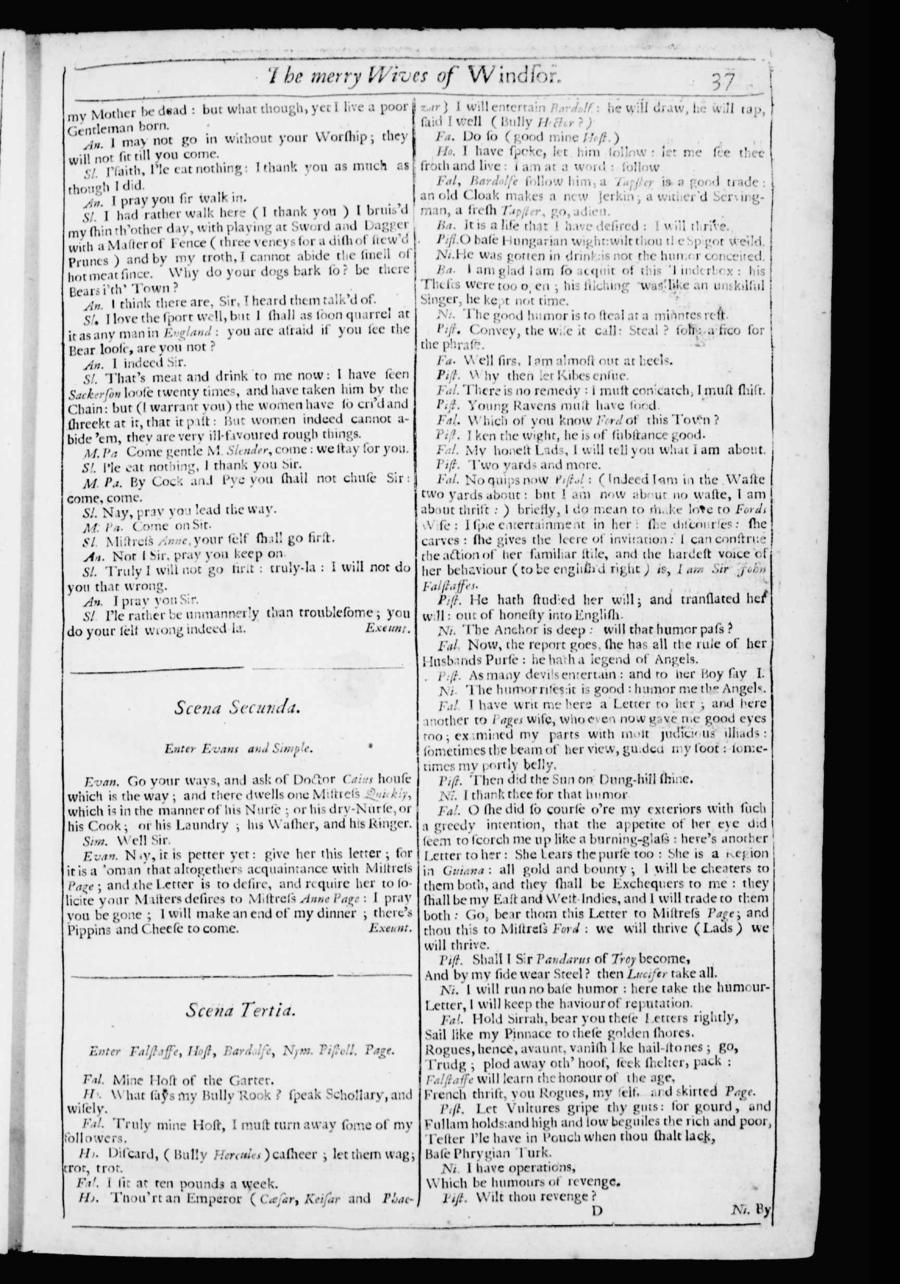 The merry Wives of Windſor.
37
my Mother be dead : but what though, yet I live a poor
Gentleman born.
An. I may not go in without your Worſhip; they
will not ſit till you come.
Sl. I'faith, I'le eat nothing: I thank you as much as
though I did.
An. I pray you ſir walk in.
Sl. I had rather walk here ( I thank you ) I bruis'd
my ſhin th'other day, with playing at Sword and Dagger
with a Maſter of Fence ( three veneys for a diſh of ſtew'd
Prunes ) and by my troth, I cannot abide the ſmell of
hot meat ſince. Why do your dogs bark ſo? be there
Bears i'th' Town ?
An. I think there are, Sir, I heard them talk'd of.
Sl. I love the ſport well, but I ſhall as ſoon quarrel at
it as any man in England : you are afraid if you ſee the
Bear looſe, are you not ?
An. I indeed Sir.
Sl. That's meat and drink to me now: I have ſeen
Sackerſon looſe twenty times, and have taken him by the
Chain: but (I warrant you) the women have ſo cri'd and
ſhreekt at it, that it paſt: But women indeed cannot a-
bide 'em, they are very ill-favoured rough things.
M. Pa Come gentle M. Slender, come: we ſtay for you.
Sl. I'le eat nothing, I thank you Sir.
M. Pa. By Cock and Pye you ſhall not chuſe Sir:
come, come.
Sl. Nay, pray you lead the way.
M. Pa. Come on Sir.
Sl. Miſtreſs Anne, your ſelf ſhall go firſt.
An. Not I Sir, pray you keep on.
Sl. Truly I will not go firſt : truly-la : I will not do
you that wrong.
An. I pray you Sir.
Sl I'le rather be unmannerly than troubleſome; you
do your ſelf wrong indeed la. Exeunt.
Scena Secunda.
Enter Evans and Simple.
Evan. Go your ways, and ask of Doctor Caius houſe
which is the way ; and there dwells one Miſtreſs Quickly,
which is in the manner of his Nurſe ; or his dry-Nurſe, or
his Cook ; or his Laundry ; his Waſher, and his Ringer.
Sim. Well Sir.
Evan. Nay, it is petter yet : give her this letter ; for
it is a 'oman that altogethers acquaintance with Miſtreſs
Page ; and the Letter is to deſire, and require her to ſo-
licite your Maſters deſires to Miſtreſs Anne Page : I pray
you be gone ; I will make an end of my dinner ; there's
Pippins and Cheeſe to come. Exeunt.
Scena Tertia.
Enter Falſtaffe, Hoſt, Bardolfe, Nym. Piſtoll. Page.
Fal. Mine Hoſt of the Garter.
Ho. What ſays my Bully Rook ? ſpeak Schollary, and
wiſely.
Fal. Truly mine Hoſt, I muſt turn away ſome of my
followers.
Ho. Diſcard, ( Bully Hercules ) caſheer ; let them wag;
trot, trot.
Fal. I ſit at ten pounds a week.
Ho. Thou'rt an Emperor ( Cæſar, Keiſar and Phae-
zar) I will entertain Bardolf : he will draw, he will tap,
ſaid I well ( Bully Hector ? )
Fa. Do ſo ( good mine Hoſt. )
Ho. I have ſpoke, let him follow : let me ſee thee
froth and live : I am at a word : follow
Fal, Bardolfe follow him, a Tapſter is a good trade :
an old Cloak makes a new Jerkin; a wither'd Serving-
man, a freſh Tapſter, go, adieu.
Ba. It is a life that I have deſired : I will thrive.
Piſt. O baſe Hungarian wight: wilt thou the Spigot weild.
Ni. He was gotten in drink: is not the humor conceited.
Ba. I am glad I am ſo acquit of this Tinderbox : his
Thefts were too open ; his filching was like an unskilful
Singer, he kept not time.
Ni. The good humor is to ſteal at a minutes reſt.
Piſt. Convey, the wiſe it call: Steal ? foh; a fico for
the phraſe.
Fa. Well ſirs, I am almoſt out at heels.
Piſt. Why then let Kibes enſue.
Fal. There is no remedy : I muſt conicatch, I muſt ſhift.
Piſt. Young Ravens muſt have food.
Fal. Which of you know Ford of this Town ?
Piſt. I ken the wight, he is of ſubſtance good.
Fal. My honeſt Lads, I will tell you what I am about.
Piſt. Two yards and more.
Fal. No quips now Piſtol : (Indeed I am in the Waſte
two yards about : but I am now about no waſte, I am
about thrift : ) briefly, I do mean to make love to Fords
Wife : I ſpie entertainment in her : ſhe diſcourſes : ſhe
carves : ſhe gives the leere of invitation : I can conſtrue
the action of her familiar ſtile, and the hardeſt voice of
her behaviour ( to be engliſh'd right ) is, I am Sir John
Falſtaffes.
Piſt. He hath ſtudied her will; and tranſlated her
will : out of honeſty into Engliſh.
Ni. The Anchor is deep : will that humor paſs ?
Fal. Now, the report goes, ſhe has all the rule of her
Husbands Purſe : he hath a legend of Angels.
Piſt. As many devils entertain : and to her Boy ſay I.
Ni. The humor riſes: it is good : humor me the Angels.
Fal. I have writ me here a Letter to her ; and here
another to Pages wife, who even now gave me good eyes
too; examined my parts with moſt judicious illiads :
ſometimes the beam of her view, guided my foot : ſome-
times my portly belly.
Piſt. Then did the Sun on Dung-hill ſhine.
Ni. I thank thee for that humor
Fal. O ſhe did ſo courſe o're my exteriors with ſuch
a greedy intention, that the appetite of her eye did
ſeem to ſcorch me up like a burning-glaſs : here's another
Letter to her : She bears the purſe too : She is a Region
in Guiana : all gold and bounty ; I will be cheaters to
them both, and they ſhall be Exchequers to me : they
ſhall be my Eaſt and Weſt-Indies, and I will trade to them
both : Go, bear thom this Letter to Miſtreſs Page; and
thou this to Miſtreſs Ford : we will thrive (Lads ) we
will thrive.
Piſt. Shall I Sir Pandarus of Troy become,
And by my ſide wear Steel ? then Lucifer take all.
Ni. I will run no baſe humor : here take the humour-
Letter, I will keep the haviour of reputation.
Fal. Hold Sirrah, bear you theſe Letters rightly,
Sail like my Pinnace to theſe golden ſhores.
Rogues, hence, avaunt, vaniſh like hail-ſtones ; go,
Trudg ; plod away oth' hoof, ſeek ſhelter, pack :
Falſtaffe will learn the honour of the age,
French thrift, you Rogues, my ſelf, and skirted Page.
Piſt. Let Vultures gripe thy guts: for gourd, and
Fullam holds: and high and low beguiles the rich and poor,
Teſter I'le have in Pouch when thou ſhalt lack,
Baſe Phrygian Turk.
Ni. I have operations,
Which be humours of revenge.
Piſt. Wilt thou revenge ?
D
Ni. By